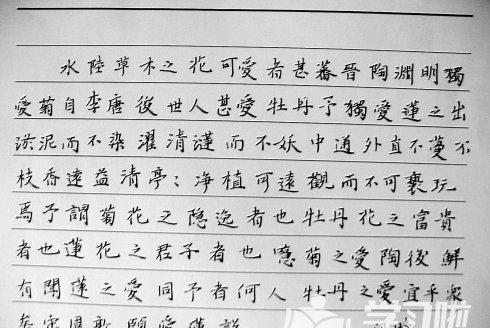 水陸草木之花可愛者甚蕃晉陶淵明獨
愛菊自李唐後世人甚愛牡丹予獨愛蓮之出
淤泥而不染濯清漣而不妖中通外直不蔓不
枝香遠益清亭亭淨植可遠觀而不可褻玩
焉予謂菊花之隱逸者也牡丹花之富貴
者也蓮花之君子者也噫菊之愛陶後鮮
有聞蓮之愛同予者何人牡丹之愛宜乎眾
愛蓮說
学习啦